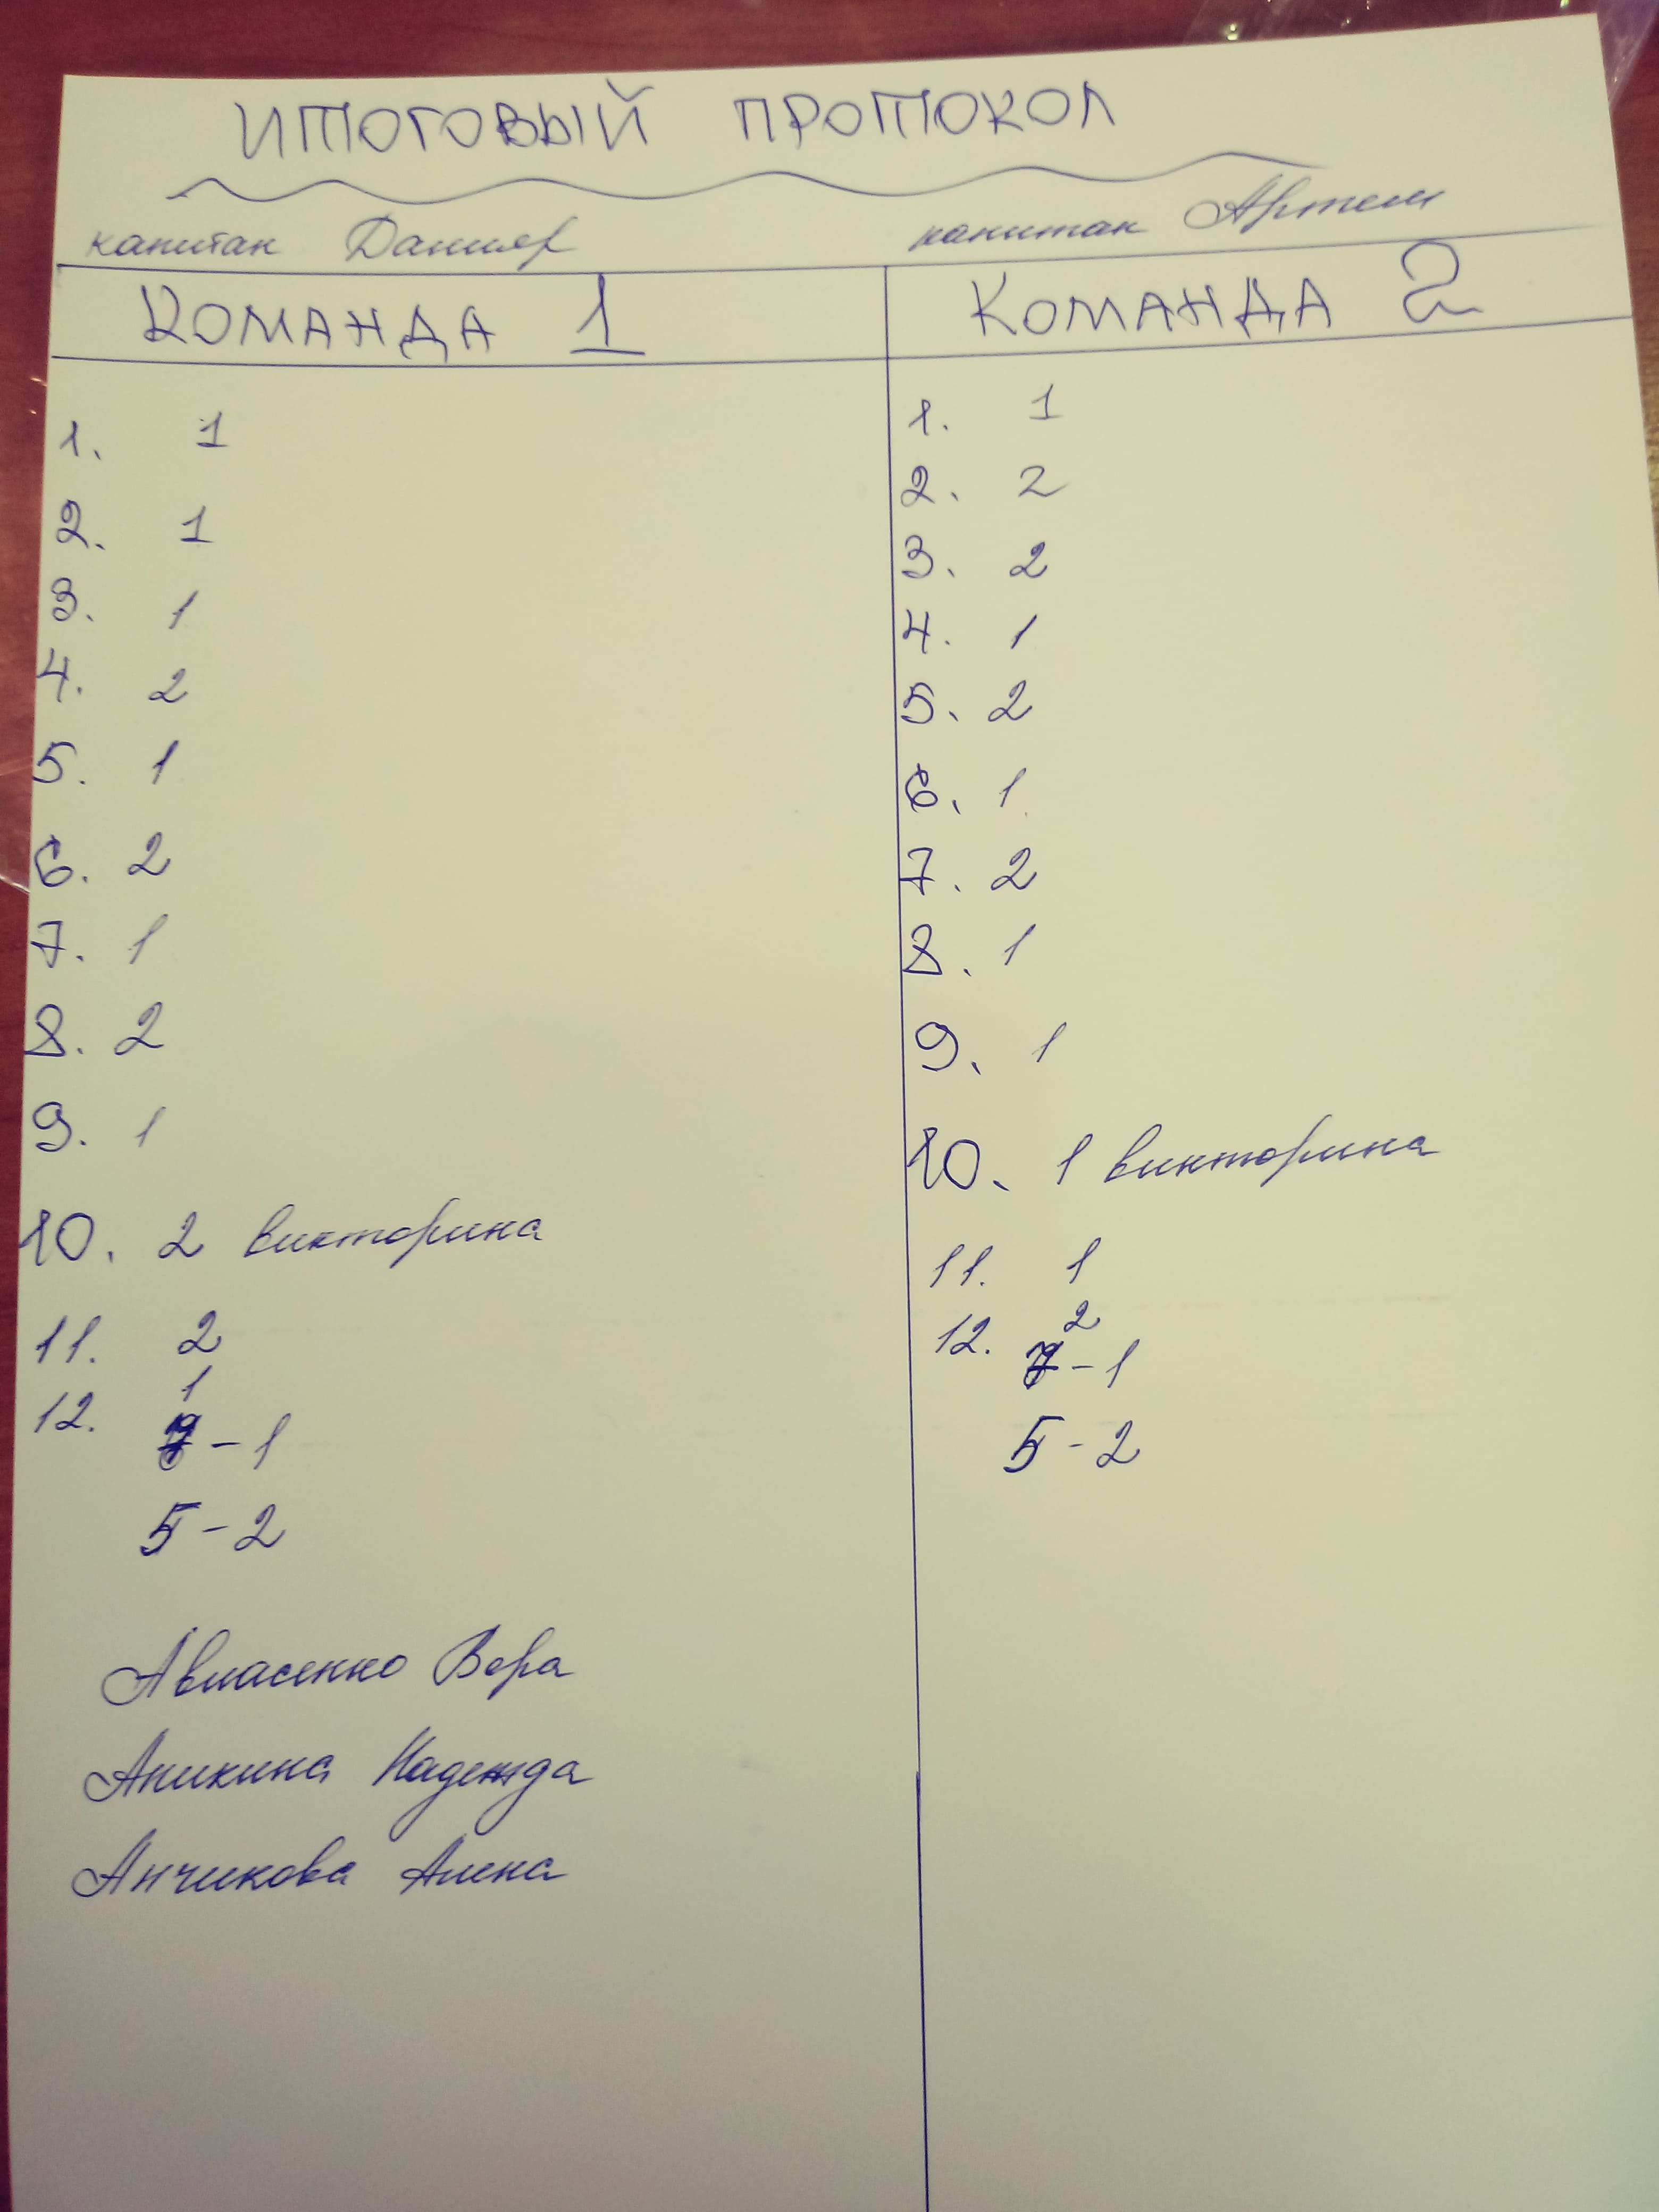 ИТОГОВЫЙ ПРОТОКОЛ
капитан Данияр
капитан Артем
КОМАНДА 1
1. 1
2. 1
3. 1
4. 2
5. 1
6. 2
7. 1
8. 2
9. 1
10. 2 викторина
11. 2
12. 1
- 1
5 - 2
Авласенко Вера
Аникина Надежда
Анчикова Алена
КОМАНДА 2
1. 1
2. 2
3. 2
4. 1
5. 2
6. 1
7. 2
8. 1
9. 1
10. 1 викторина
11. 1
12. 2
- 1
5 - 2